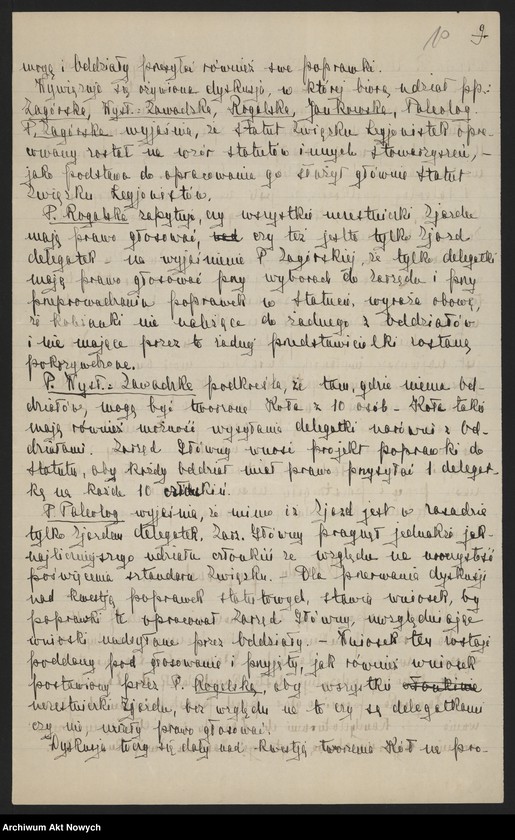 10 9.
mogą i oddziały przesyłać również swe poprawki.
Wywiązuje się ożywiona dyskusja, w której biorą udział pp.:
Zagórska, Wyst.-Zawadzka, Rogalska, Jankowska, Paleolog.
P. Zagórska wyjaśnia, że statut Związku Legjonistek opra-
cowany został na wzór statutów innych stowarzyszeń, -
jako podstawa do opracowania go służył głównie statut
Związku Legjonistów.
P. Rogalska zapytuje, czy wszystkie uczestniczki Zjazdu
mają prawo głosować, czy też jest to tylko Zjazd
delegatek - na wyjaśnienie P. Zagórskiej, że tylko delegatki
mają prawo głosować przy wyborach do Zarządu i przy
przeprowadzaniu poprawek w statucie, wyraża obawę,
że kobianki nie należące do żadnego z oddziałów
i nie mające przez to żadnej przedstawicielki zostaną
pokrzywdzone.
P. Wyst.-Zawadzka podkreśla, że tam, gdzie niema od-
działów, mogą być tworzone Koła z 10 osób - Koła takie
mają również możność wysyłania delegatki narówni z od-
działami. Zarząd Główny wnosi projekt poprawki do
statutu, aby każdy oddział miał prawo przysyłać 1 delegat-
kę na każde 10 członkiń.
P. Paleolog wyjaśnia, że mimo iż Zjazd jest w zasadzie
tylko Zjazdem delegatek, Zarz. Główny pragnął jednakże jak-
najliczniejszego udziału członkiń ze względu na uroczystość
poświęcenia sztandaru Związku. - Dla przerwania dyskusji
nad kwestją poprawek statutowych, stawia wniosek, by
poprawki te opracował Zarząd Główny, uwzględniając
wnioski nadsyłane przez oddziały. - Wniosek ten zostaje
poddany pod głosowanie i przyjęty, jak również wniosek
postawiony przez P. Rogalską, aby wszystkie członkinie
uczestniczki Zjazdu, bez względu na to czy są delegatkami
czy nie miały prawo głosować.
Dyskusja toczy się dalej nad kwestją tworzenia Kół na pro-
Archiwum Akt Nowych
Archiwum Akt Nowych